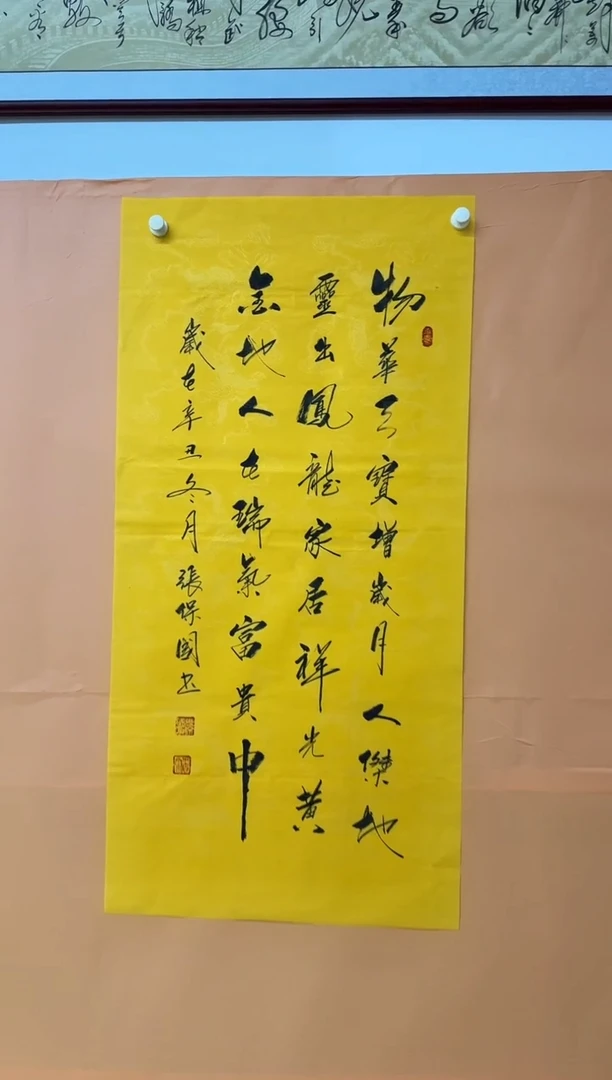 物華天寶增歲月人傑地
靈出鳳龍家居祥光黃
金地人在瑞氣富貴中
歲在辛丑冬月張保國书